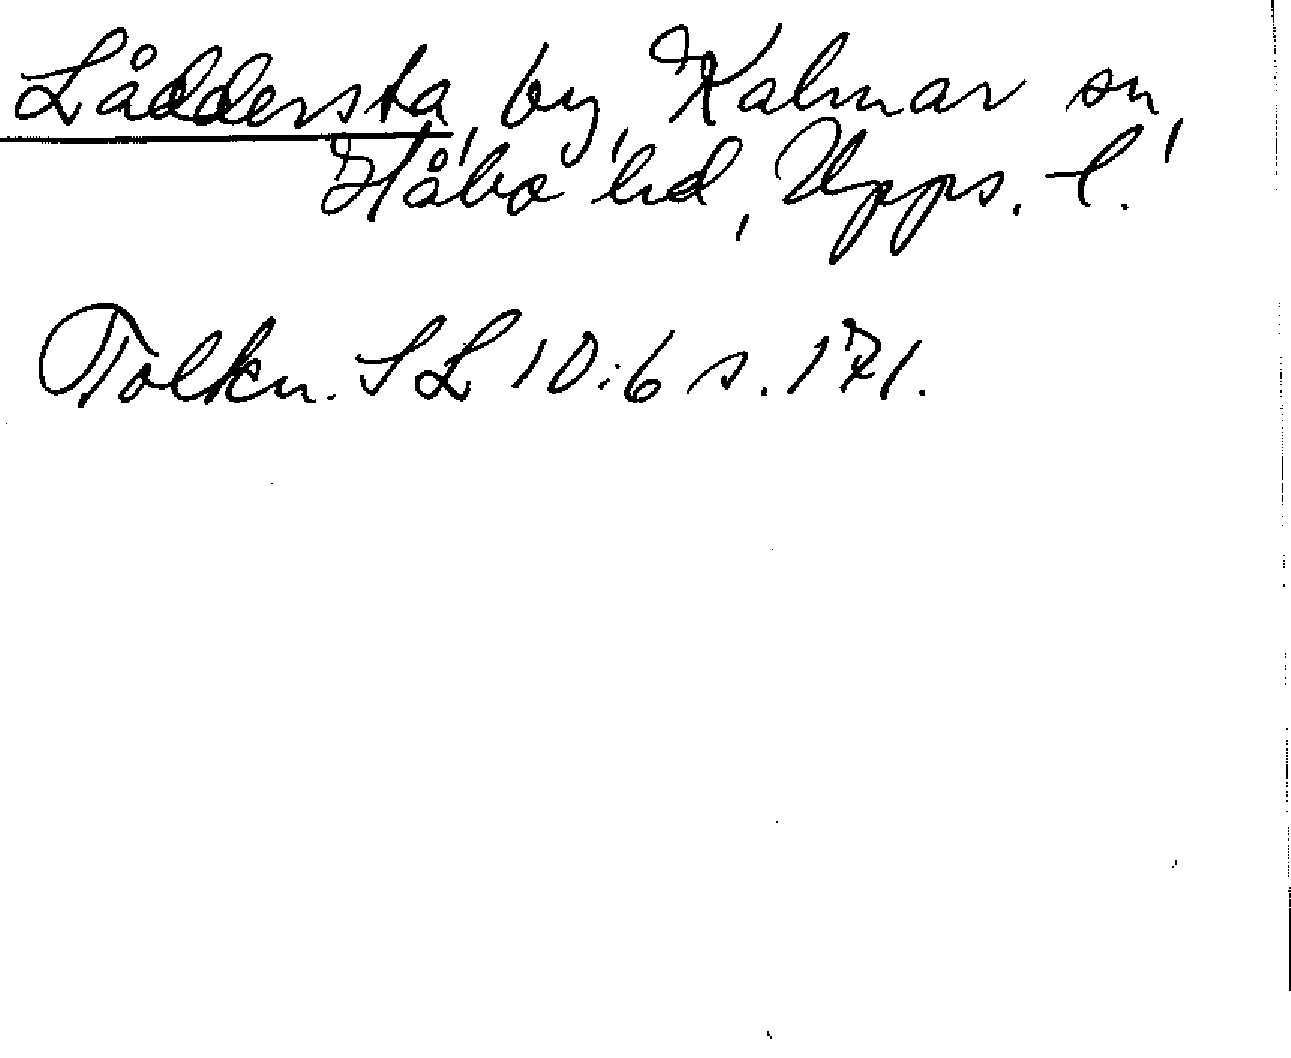 Låddersta, by, Kalmar sn,
Håbo hd, Upps. l.
Tolkn. SL 10:6 s. 171.